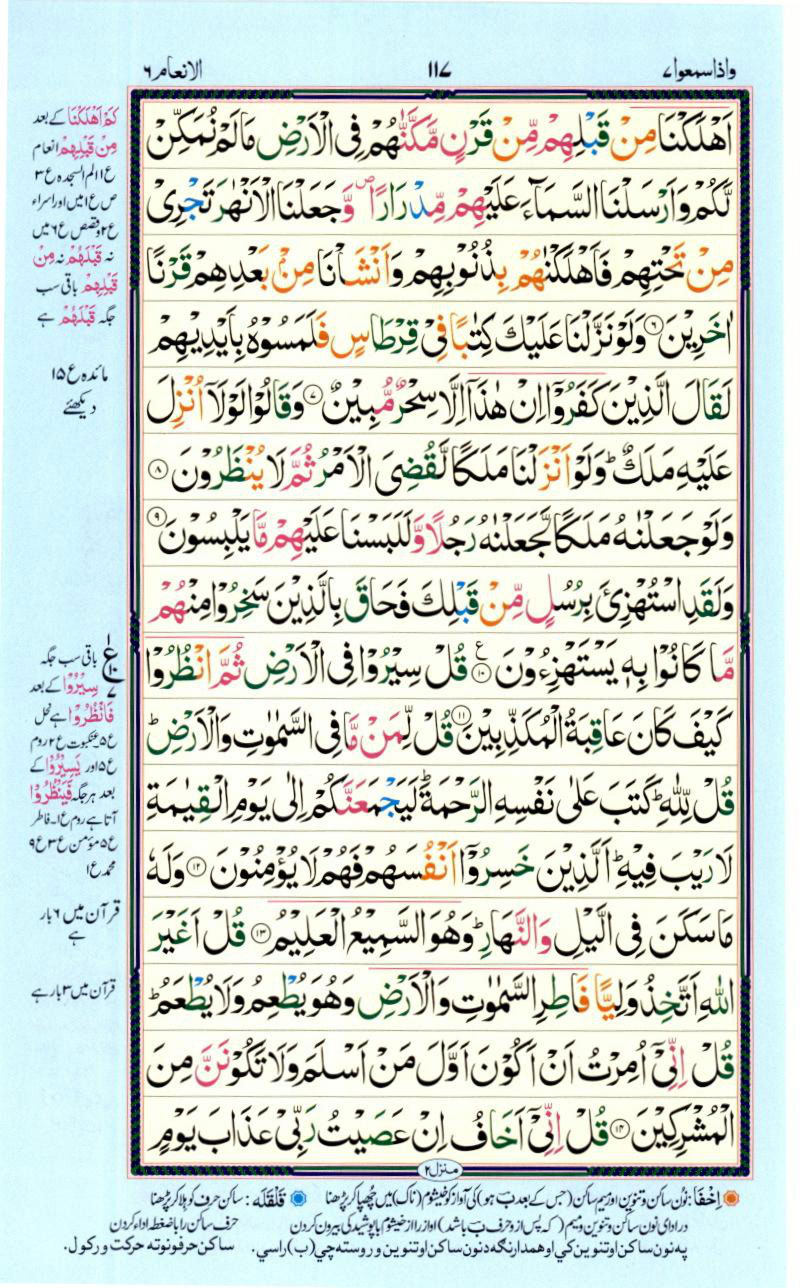 واذاسمعوا۷
۱۱۷
الانعام۶
اَهْلَكْنَا مِنْ قَبْلِهِمْ مِّنْ قَرْنٍ مَّكَّنّٰهُمْ فِی الْاَرْضِ مَا لَمْ نُمَكِّنْ
لَّكُمْ وَاَرْسَلْنَا السَّمَآءَ عَلَیْهِمْ مِّدْرَارًا ۪ وَّجَعَلْنَا الْاَنْهٰرَ تَجْرِیْ
مِنْ تَحْتِهِمْ فَاَهْلَكْنٰهُمْ بِذُنُوْبِهِمْ وَاَنْشَاْنَا مِنْۢ بَعْدِهِمْ قَرْنًا
اٰخَرِیْنَ ۶ وَلَوْ نَزَّلْنَا عَلَیْكَ كِتٰبًا فِیْ قِرْطَاسٍ فَلَمَسُوْهُ بِاَیْدِیْهِمْ
لَقَالَ الَّذِیْنَ كَفَرُوْۤا اِنْ هٰذَاۤ اِلَّا سِحْرٌ مُّبِیْنٌ ۷ وَقَالُوْا لَوْلَاۤ اُنْزِلَ
عَلَیْهِ مَلَكٌ ؕ وَلَوْ اَنْزَلْنَا مَلَكًا لَّقُضِیَ الْاَمْرُ ثُمَّ لَا یُنْظَرُوْنَ ۸
وَلَوْ جَعَلْنٰهُ مَلَكًا لَّجَعَلْنٰهُ رَجُلًا وَّلَلَبَسْنَا عَلَیْهِمْ مَّا یَلْبِسُوْنَ ۹
وَلَقَدِ اسْتُهْزِئَ بِرُسُلٍ مِّنْ قَبْلِكَ فَحَاقَ بِالَّذِیْنَ سَخِرُوْا مِنْهُمْ
مَّا كَانُوْا بِهٖ یَسْتَهْزِءُوْنَ ۱۰ ع قُلْ سِیْرُوْا فِی الْاَرْضِ ثُمَّ انْظُرُوْا
كَیْفَ كَانَ عَاقِبَةُ الْمُكَذِّبِیْنَ ۱۱ قُلْ لِّمَنْ مَّا فِی السَّمٰوٰتِ وَالْاَرْضِ ؕ
قُلْ لِّلّٰهِ ؕ كَتَبَ عَلٰی نَفْسِهِ الرَّحْمَةَ ؕ لَیَجْمَعَنَّكُمْ اِلٰی یَوْمِ الْقِیٰمَةِ
لَا رَیْبَ فِیْهِ ؕ اَلَّذِیْنَ خَسِرُوْۤا اَنْفُسَهُمْ فَهُمْ لَا یُؤْمِنُوْنَ ۱۲ وَلَهٗ
مَا سَكَنَ فِی الَّیْلِ وَالنَّهَارِ ؕ وَهُوَ السَّمِیْعُ الْعَلِیْمُ ۱۳ قُلْ اَغَیْرَ
اللّٰهِ اَتَّخِذُ وَلِیًّا فَاطِرِ السَّمٰوٰتِ وَالْاَرْضِ وَهُوَ یُطْعِمُ وَلَا یُطْعَمُ ؕ
قُلْ اِنِّیْۤ اُمِرْتُ اَنْ اَكُوْنَ اَوَّلَ مَنْ اَسْلَمَ وَلَا تَكُوْنَنَّ مِنَ
الْمُشْرِكِیْنَ ۱۴ قُلْ اِنِّیْۤ اَخَافُ اِنْ عَصَیْتُ رَبِّیْ عَذَابَ یَوْمٍ
منزل۲
كَمْ اَهْلَكْنَا کے بعد
مِنْ قَبْلِهِمْ انعام
ع۱ الم السجدہ ع۳
ص ع۱ میں اور اسراء
ع۲ وقصص ع۶ میں
نہ قَبْلَهُمْ نہ مِنْ
قَبْلِهِمْ باقی سب
جگہ قَبْلَهُمْ ہے
مائدہ ع۱۵
دیکھئے
باقی سب جگہ
سِیْرُوْا کے بعد
فَانْظُرُوْا ہے نحل
ع۵ عنکبوت ع۲ روم
ع۵ اور یَسِیْرُوْا کے
بعد ہر جگہ فَیَنْظُرُوْا
آتا ہے روم ع۱۔فاطر
ع۵ مؤمن ع۳ ع۹
محمد ع۱
قرآن میں ۶ بار
ہے
قرآن میں ۳ بار ہے
اِخْفَا: نون ساکن وتنوین اور میم ساکن (جس کے بعد ب ہو) کی آواز کو خیشوم (ناک) میں چھپا کر پڑھنا
قَلْقَلَه: ساکن حرف کو ہلا کر پڑھنا
در ادای نون ساکن وتنوین ومیم (که پس از و حرف ب باشد) آواز را از خیشوم با پوشیدگی بیرون کردن
حرف ساکن را با ضغطه ادا کردن
په نون ساکن او تنوین کي او همدارنګه د نون ساکن او تنوین وروسته چي (ب) راسي.
ساکن حرفونوته حرکت ورکول.